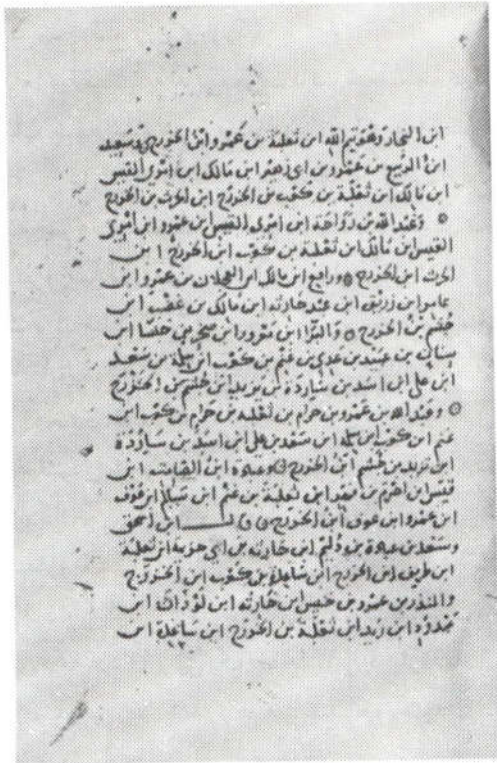 ابن النجار وهو تيم الله ابن ثعلبة بن عمرو ابن الخزرج وسعد
ابن الربيع بن عمرو بن ابي زهير ابن مالك ابن امرئ القيس
ابن مالك ابن ثعلبة بن كعب بن الخزرج ابن الحرث بن الخزرج
وعبد الله بن رواحة ابن امرئ القيس ابن عمرو ابن امرئ
القيس ابن مالك ابن ثعلبة بن كعب ابن الخزرج ابن
الحرث ابن الخزرج ورافع ابن مالك ابن العجلان بن عمرو ابن
عامر ابن زريق ابن عبد حارثه ابن مالك بن غضب ابن
جشم بن الخزرج والبرا ابن معرور ابن صخر بن خنسا ابن
سنان بن عبيد بن عدي بن غنم بن كعب ابن سلمة بن سعد
ابن علي ابن اسد بن ساردة بن تزيد ابن جشم بن الخزرج
وعبد الله بن عمرو بن حرام بن ثعلبه بن حرام بن كعب ابن
غنم ابن كعب ابن سلمه ابن سعد بن علي ابن اسد بن ساردة
ابن تزيد بن جشم ابن الخزرج وعبادة ابن الصامت ابن
قيس ابن اصرم بن فهر ابن ثعلبة بن غنم ابن سالم ابن عوف
ابن عمرو ابن عوف ابن الخزرج قال ابن اسحق
وسعد بن عبادة بن دليم ابن حارثه بن ابي حزيمة ابن ثعلبة
ابن طريف ابن الخزرج ابن ساعدة بن كعب ابن الخزرج
والمنذر بن عمرو بن خنيس ابن حارثه ابن لوذان ابن
عبدود ابن زيد ابن ثعلبة بن الخزرج ابن ساعدة ابن